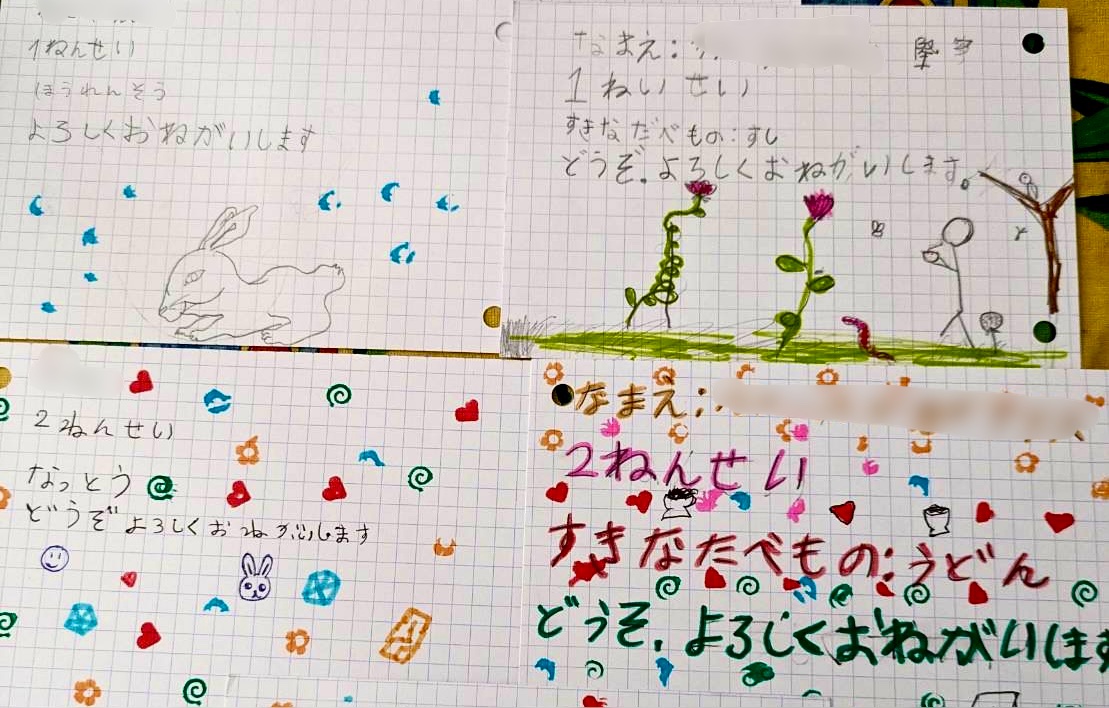 1ねんせい
ほうれんそう
よろしくおねがいします
なまえ:
1ねいせい
すきなたべもの:すし
どうぞ.よろしくおねがいします。
2ねんせい
なっとう
どうぞよろしくおねがいします
なまえ:
2ねんせい
すきなたべもの:うどん
どうぞ.よろしくおねがいします